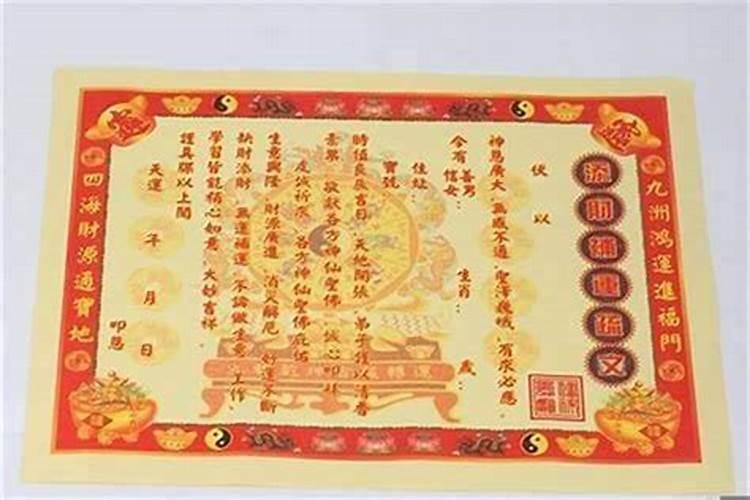 九洲鴻運進福門
添財補運疏文
伏以
神恩廣大 無感不通 聖澤巍峨 有求必應
今有善男信女: 生肖: 歲:
住址:
寶號:
時值良辰吉日 天地開張 弟子僅以清香
素果 敬獻各方神仙聖佛 誠心叩拜
虔誠祈求 各方神仙聖佛庇佑
生意興隆 財源廣進 消災解厄 好運不斷
缺財添財 無運補運 不論做生意、工作、
學習皆能稱心如意 大妙吉祥
謹具疏以上聞
天運 年 月 日
叩恩
四海財源通寶地